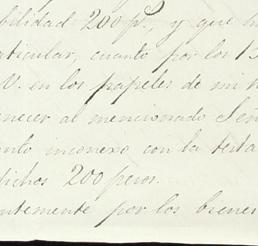 bilidad 200 p.s, y que h
rticular, cuanto por los 15
V. en los papeles de mi
enecer al mencionado Señ
anto inconexo con la testa
dichos 200 pesos.
ntemente por los biene